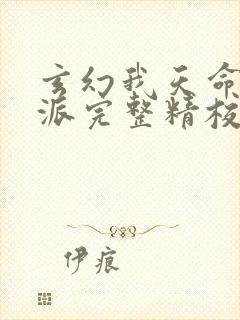 玄幻我天命
派完整精校
伊痕